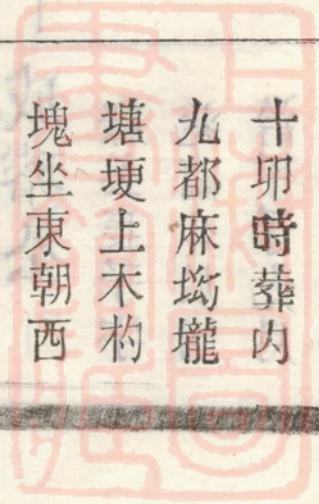 十卯時葬内
九都麻㘭壠
塘埂上木杓
塊坐東朝西